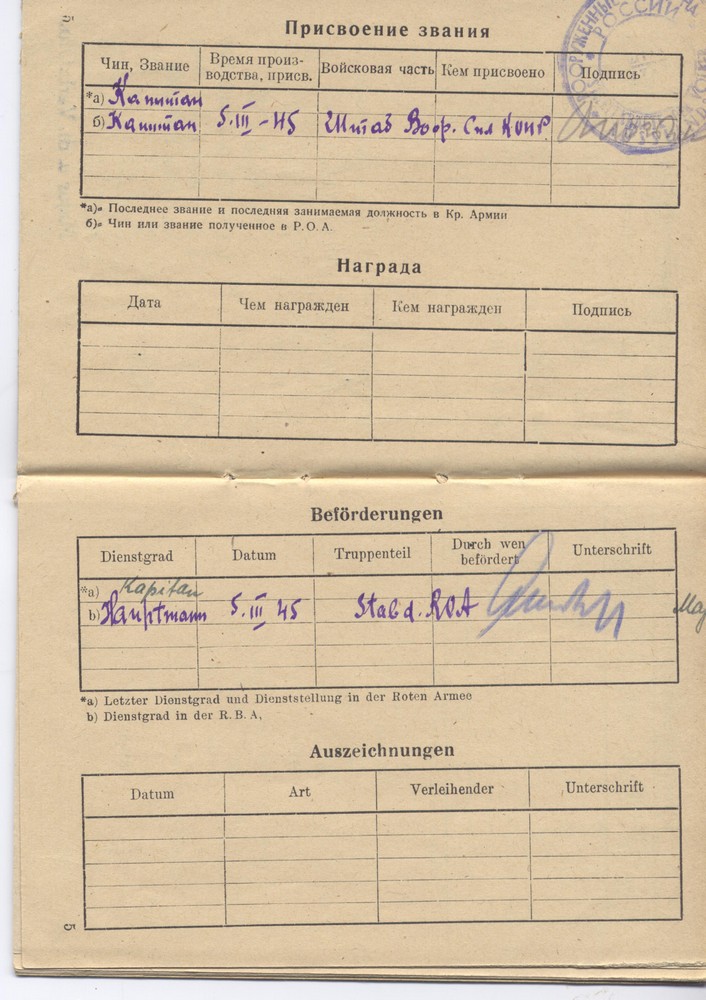 5
Присвоение звания
РОССИИ
Чин, Звание
Время произ-
водства, присв.
Войсковая часть
Кем присвоено
Подпись
*а) Капитан
б) Капитан 5. III – 45 Штаб Воор. Сил КОНР
*а)= Последнее звание и последняя занимаемая должность в Кр. Армии
б)= Чин или звание полученное в Р.О.А.
Награда
Дата
Чем награжден
Кем награжден
Подпись
Beförderungen
Dienstgrad
Datum
Truppenteil
Durch wen
befördert
Unterschrift
*a) Kapitan
b) Hauptmann 5. III 45 Stab d. ROA
*a) Letzter Dienstgrad und Dienststellung in der Roten Armee
b) Dienstgrad in der R.B.A,
Auszeichnungen
Datum
Art
Verleihender
Unterschrift
5